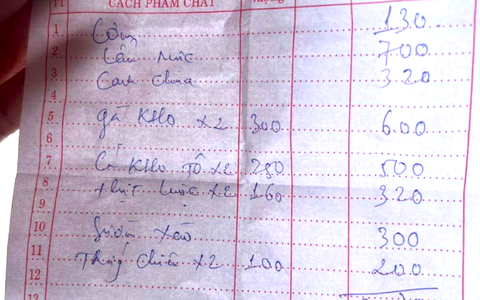 TT CÁCH PHẨM CHẤT lượng
1 Cơm 130
2 Lẩu mực 700
3 Canh chua 320
4
5 gà KHO x2 300 600
6
7 Cá KHO TỘ x2 250 500
8 thịt luộc x2 160 320
9
10 xào 300
11 chiên x2 100 200
12